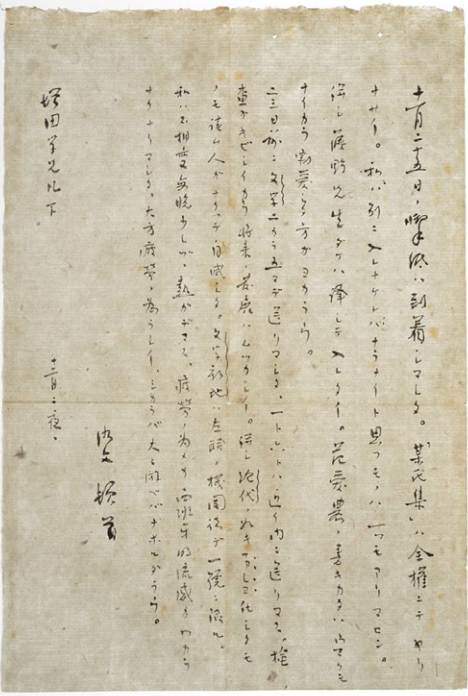 十一月二十五日ノ御手紙ハ到着シマシタ。某氏集ハ全権ニテヤリ
ナサイ。私ハ別ニ入レナケレバナラナイト思フモノハ一ツモアリマセン。
併シ藤野先生ダケハ譯シテ入レタイ。范愛農ノ書キカタハウマクモ
ナイカラ割愛スル方ガヨカラウ。
二三日前ニ文学二カラ五マデ送リマシタ。一ト六トハ近イ内ニ送リマス。検
査ガキビシイカラ将来ノ発展ハムツカシイ。併シ現代ノ如キファショ化シタモ
ノモ読ム人ガナクッテ自滅シタ。文学新地ハ左聯ノ機関誌デ一號ニ限ル。
私ハ不相変毎晩少シヅツ熱ガデマス。疲労ノ為メカ西班牙的流感カワカラ
ナクナリマシタ。大方疲労ノ為ラシイ、シカラバ大ニ遊ベバナホルダラウ。
洛文 頓首
十二月二夜、
増田学兄几下